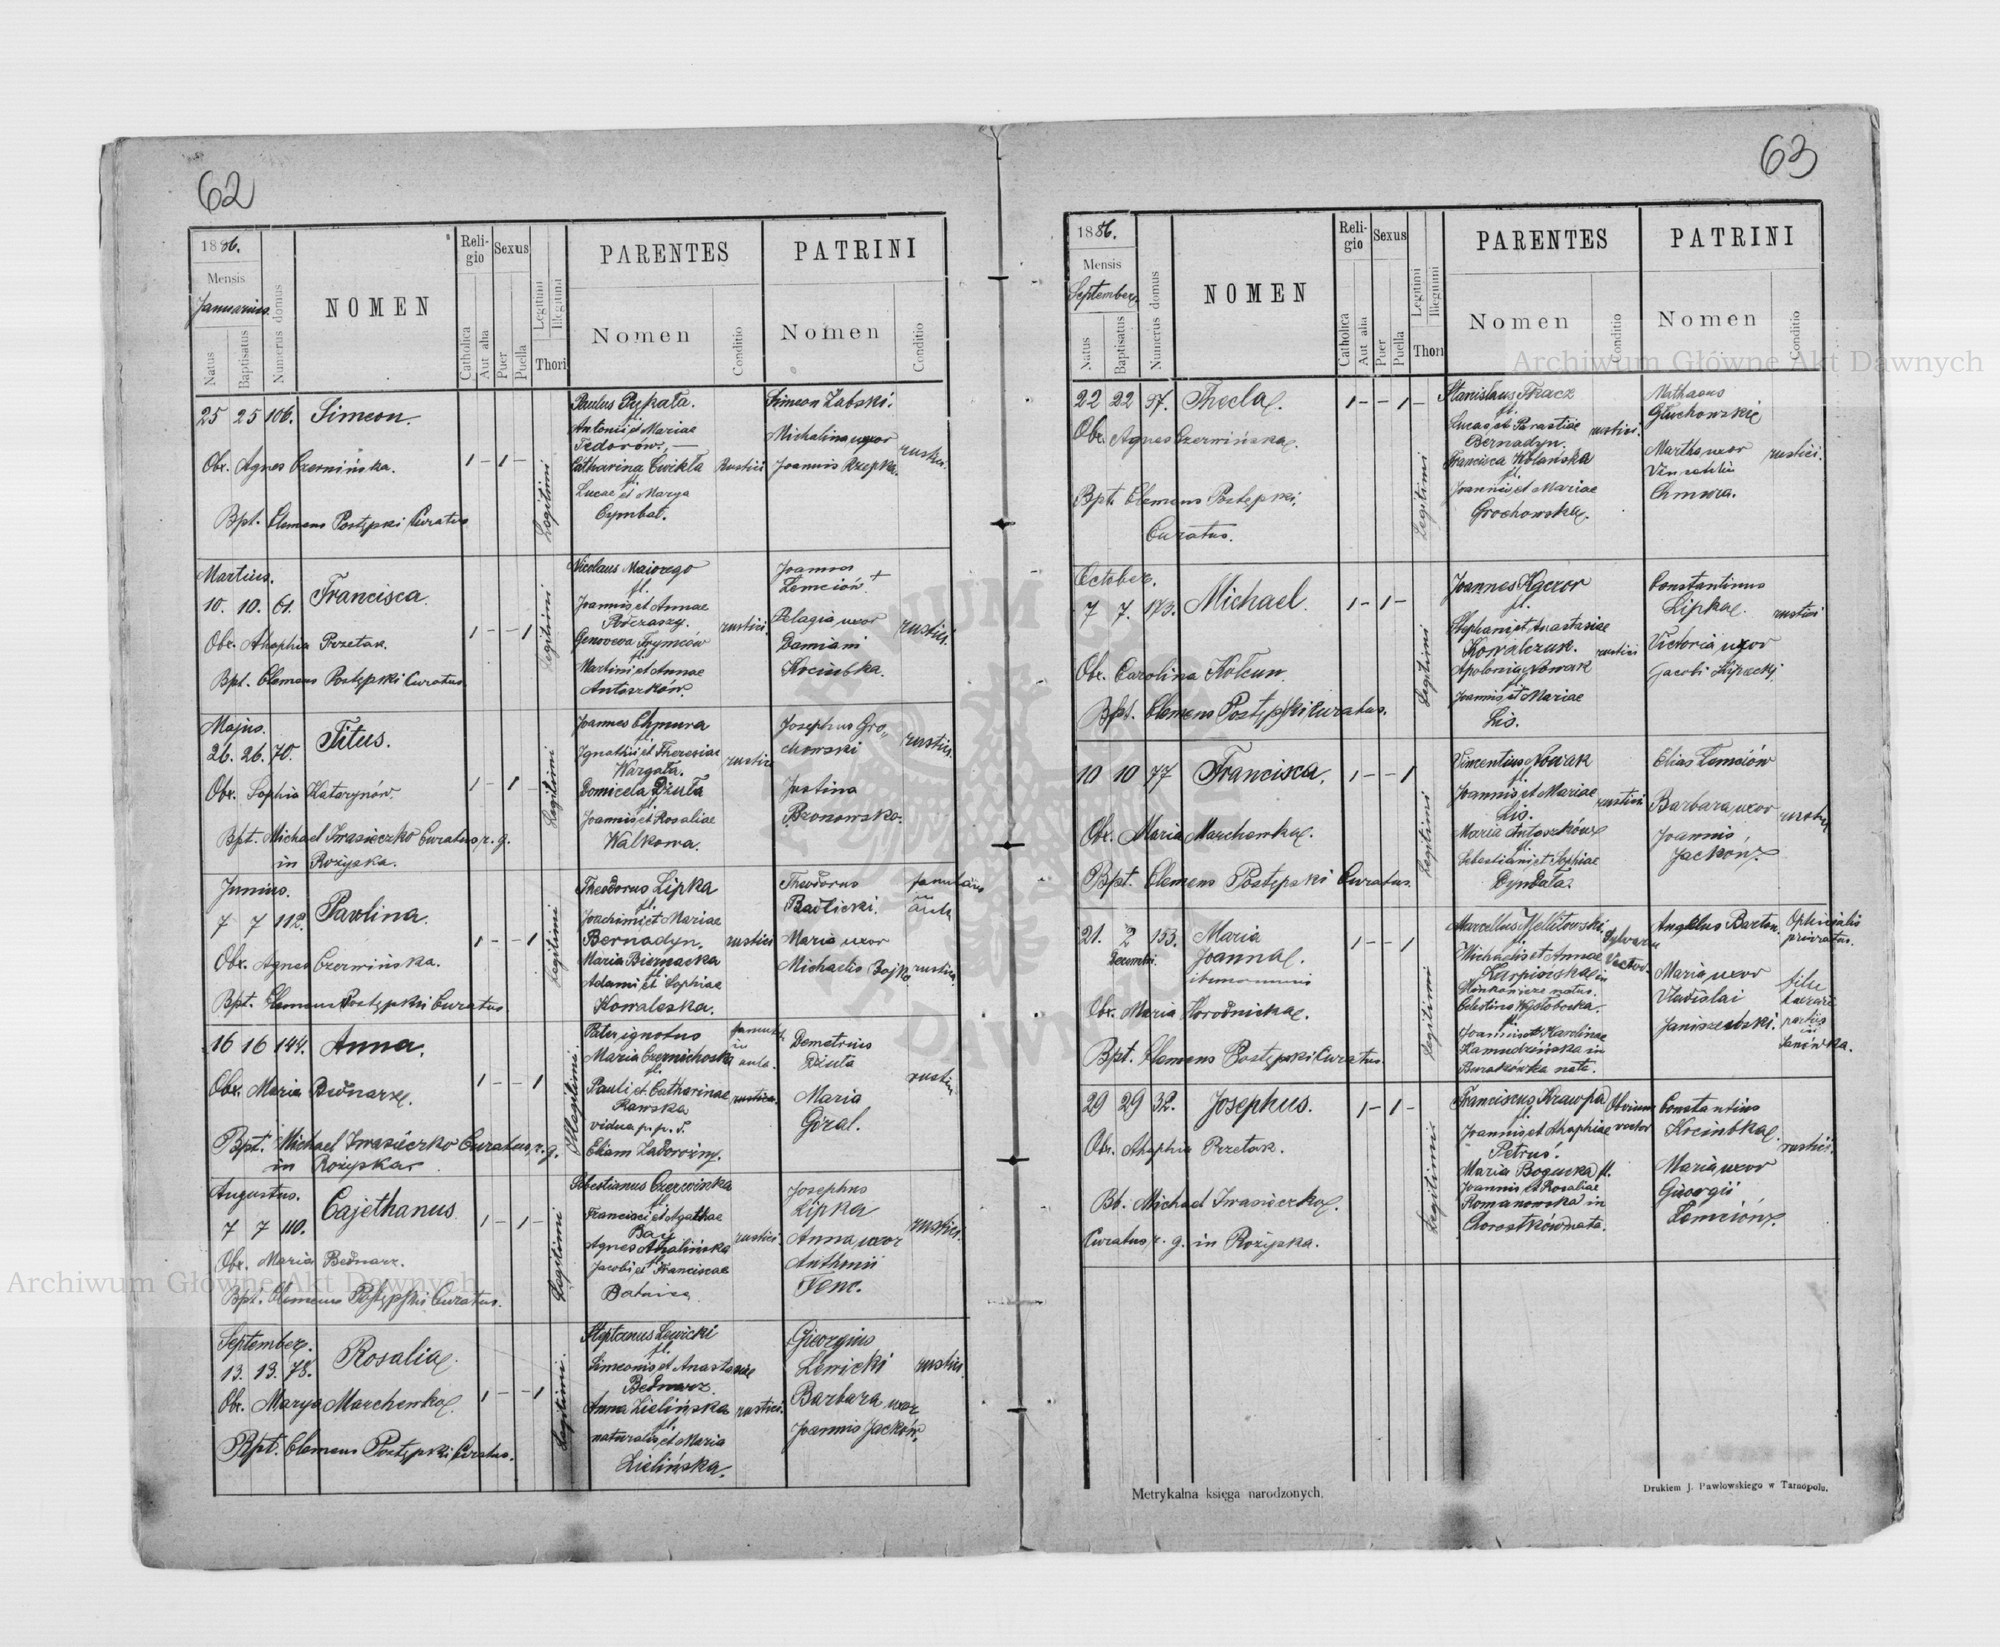 62
1886.
Mensis
Januarius.
Natus
Baptisatus
Numerus domus
NOMEN
Religio
Catholica
Aut alia
Sexus
Puer
Puella
Legitimi
Illegitimi
Thori
PARENTES
Nomen
Conditio
PATRINI
Nomen
Conditio
25 25 106. Simeon.
Obx. Agnes Czerwińska.
Bpt. Clemens Postępski Curatus
1 - 1 -
Legitimi
Antonii et Mariae
Fedorów.
Catharina Cwikła
fl.
Lucae et Marya
Cymbal.
Rustici
Simeon Zabski.
Michalina uxor
Joannis Rzepka.
rustici.
Martius.
10. 10. 61. Francisca.
Obx. Ahaphia Przetak.
Bpt. Clemens Postępski Curatus.
1 - - 1
Legitimi
Nicolaus
fl.
Joannis et Annae
Genoveva
Martini et Annae
Antoszków.
rustici.
Joannes
Lemciów +
Pelagia uxor
Damiani
Kociubka.
rustici.
Majus.
26. 26. 70. Titus.
Obx. Sophia Katarynów.
Bpt. Michael Iwasieczko Curatus, r. g.
in Rożyska.
1 - 1 -
Legitimi
Joannes Chmura
fl.
Ignatii et Theresiae
Wargata.
Domicela Dziuła
fl.
Joannis et Rosaliae
Walkowa.
rustici
Josephus Gro„
chowski
Justina
Bronowska.
rustici.
Junius.
7 7 112. Pavlina.
Obx. Agnes Czerwińska.
Bpt. Clemens Postępski Curatus.
1 - - 1
Legitimi
Theodorus Lipka
fl.
Joachimi et Mariae
Bernadyn.
Maria Biernacka
fl.
Adami et Sophiae
Kowalska.
rustici
Theodorus
Maria uxor
Michaelis Bojko
rustica.
16 16 144. Anna.
Obx. Maria Bednarz.
Bpt. Michael Iwasieczko Curatus, r. g.
in Rożyska
1 - - 1
Illegitimi
Pater ignotus
Maria
fl.
Pauli et Catharinae
Rawska
vidua p. p. d.
Eliam Zadorożny.
in
aula.
rustica.
Demetrius
Dziuła
Maria
Góral.
Augustus.
7 7 110. Cajethanus.
Obx. Maria Bednarz.
Bpt. Clemens Postępski Curatus.
1 - 1 -
Legitimi
Sebestianus Czerwinka
fl.
Francisci et Agathae
Agnes
Jacobi et Franciscae
rustici.
Josephus
Lipka
Anna uxor
Anthonii
Tenc.
rustici.
September.
13. 13. 78. Rosalia.
Obx. Marya Marchewka.
Bpt. Clemens Postępski Curatus.
1 - - 1
Legitimi.
Stephanus Lewicki
fl.
Simeonis et Anastasiae
Bednarz.
Anna Zielińska
fl.
naturalis et Maria
Zielińska.
rustici.
Gieorgius
Lewicki
Barbara uxor
Joannis Jacków.
rustici.
63
1886.
Mensis
September.
Natus
Baptisatus
Numerus domus
NOMEN
Religio
Catholica
Aut alia
Sexus
Puer
Puella
Legitimi
Illegitimi
Thori
PARENTES
Nomen
Conditio
PATRINI
Nomen
Conditio
22 22 97. Thecla.
Obx. Agnes Czerwińska.
Bpt. Clemens Postępski.
Curatus.
1 - - 1 -
Legitimi
Stanislaus Tkacz
fl.
Lucae et Parastiae
Bernadyn.
Francisca Kolańska
fl.
Joannis et Mariae
Grochowska.
rustici.
Mathaeus
Głuchowski
Martha uxor
Vincentii
Chmura.
rustici.
October.
7 7. 173. Michael.
Obx. Carolina Kołcun.
Bpt. Clemens Postępski Curatus.
1 - 1 -
Legitimi
Joannes Kaczor
fl.
Stephani et Anastasiae
Kowalczuk.
Apolonia Nowak
fl.
Joannis et Mariae
Lis.
rustici
Constantinus
Lipka.
Victoria uxor
Jacobi Lipecky.
rustici
10 10 77 Francisca.
Obx. Maria Marchewka.
Bpt. Clemens Postępski Curatus.
1 - - 1
Legitimi
Vincentius Nowak
fl.
Joannis et Mariae
Lis.
Maria Antoszków
fl.
Sebestiani et Sophiae
Dyndała.
rustici
Elias Lemciów
Barbara uxor
Joannis
Jacków.
rustici
21. 2 153. Maria
Decembri. Joanna.
Obx. Maria Horodnicka.
Bpt. Clemens Postępski Curatus.
1 - - 1
Legitimi
Marcellus
fl.
Michaelis et Annae
Karpinska in
Hinkowice natus.
Celestina
fl.
Joannis et Karolinae
in
Burakówka nata.
Angelus Barton.
Maria uxor
Vladislai
Janiszewski.
privatus.
in
Janówka.
29 29 32. Josephus.
Obx. Ahaphia Przetak.
Bb. Michael Iwasieczko.
Curatus, r. g. in Rożyska.
1 - 1 -
Legitimi
Franciscus Krawpa
fl.
Joannis et Ahaphiae
Petruś.
Maria Bogucka fl.
Joannis et Rosaliae
Romanowska in
Chorostków nata.
Constantius
Kociubka.
Maria uxor
Gieorgii
Lemciów.
rustici.
Metrykalna księga narodzonych.
Drukiem J. Pawlowskiego w Tarnopolu.
Archiwum Główne Akt Dawnych
Archiwum Główne Akt Dawnych